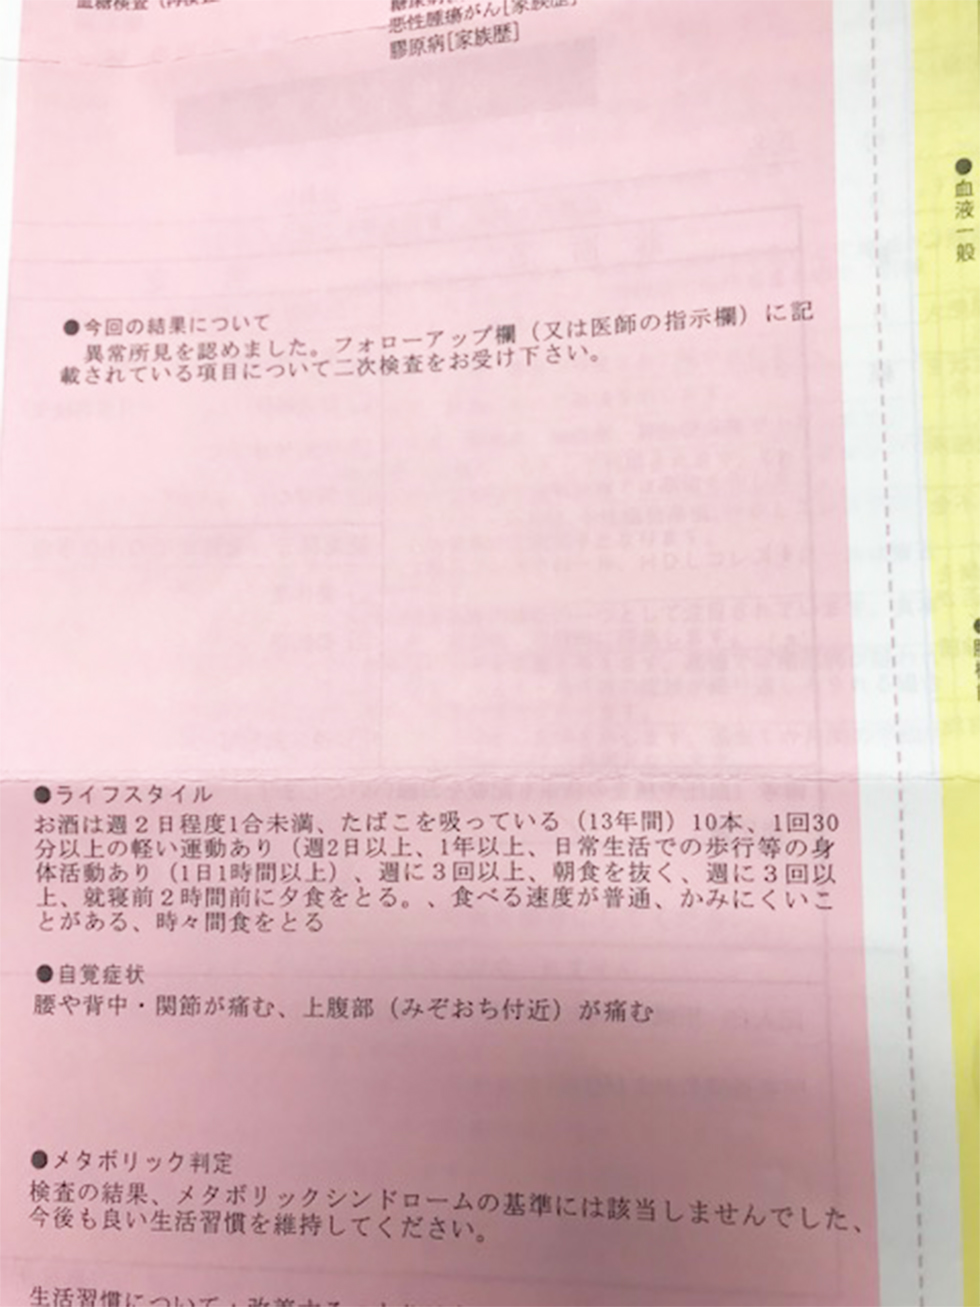 血糖検査
悪性腫瘍がん[家族歴]
膠原病[家族歴]
●今回の結果について
異常所見を認めました。フォローアップ欄（又は医師の指示欄）に記
載されている項目について二次検査をお受け下さい。
●ライフスタイル
お酒は週２日程度1合未満、たばこを吸っている（13年間）10本、1回30
分以上の軽い運動あり（週2日以上、1年以上、日常生活での歩行等の身
体活動あり（1日1時間以上）、週に３回以上、朝食を抜く、週に３回以
上、就寝前２時間前に夕食をとる。、食べる速度が普通、かみにくいこ
とがある、時々間食をとる
●自覚症状
腰や背中・関節が痛む、上腹部（みぞおち付近）が痛む
●メタボリック判定
検査の結果、メタボリックシンドロームの基準には該当しませんでした、
今後も良い生活習慣を維持してください。
生活習慣について：改善する
●血液一般